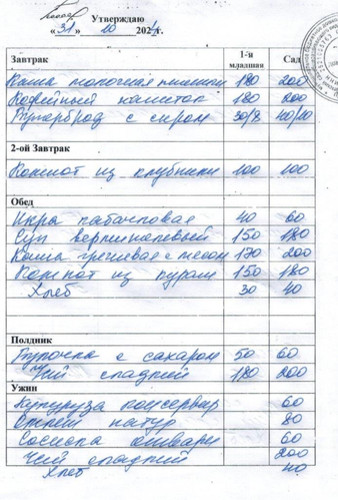 Утверждаю
«31» 10 2024г.
Завтрак 1-я младшая Сад
Каша молочная пшенная 180 200
Кофейный напиток 180 200
Бутерброд с сыром 30/8 40/10
2-ой Завтрак
Компот из клубники 100 100
Обед
Икра кабачковая 40 60
Суп вермишелевый 150 180
Каша гречневая с мясом 170 200
Компот из кураги 150 180
Хлеб 30 40
Полдник
Булочка с сахаром 50 60
Чай сладкий 180 200
Ужин
Кукуруза консервир 60
Омлет натур 80
Сосиска отварн 60
Чай сладкий 200
Хлеб 40